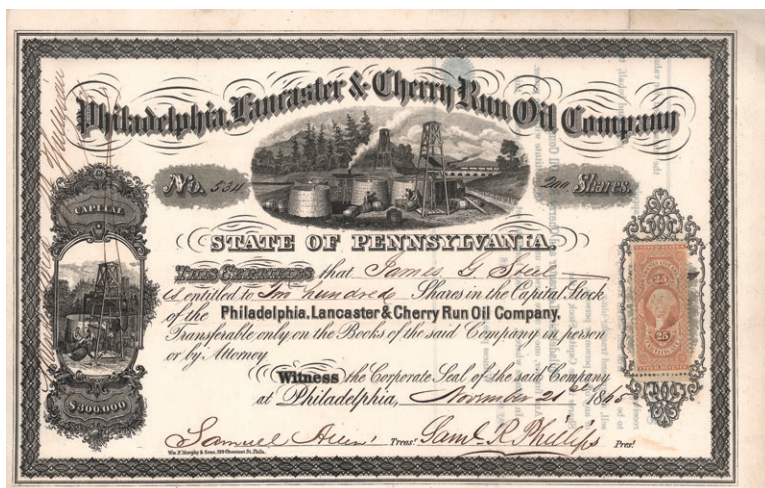 Philadelphia, Lancaster & Cherry Run Oil Company
No. 534 200 Shares.
CAPITAL
$300,000
STATE OF PENNSYLVANIA.
This Certifies that James G Steel
is entitled to Two hundred Shares in the Capital Stock
of the Philadelphia, Lancaster & Cherry Run Oil Company.
Transferable only on the Books of the said Company in person
or by Attorney
Witness the Corporate Seal of the said Company
at Philadelphia, November 21 1865
Samuel Allen Treasr. Saml. R. Phillips Prest.
Wm. F. Murphy & Sons, 339 Chestnut St. Phila.
25
25